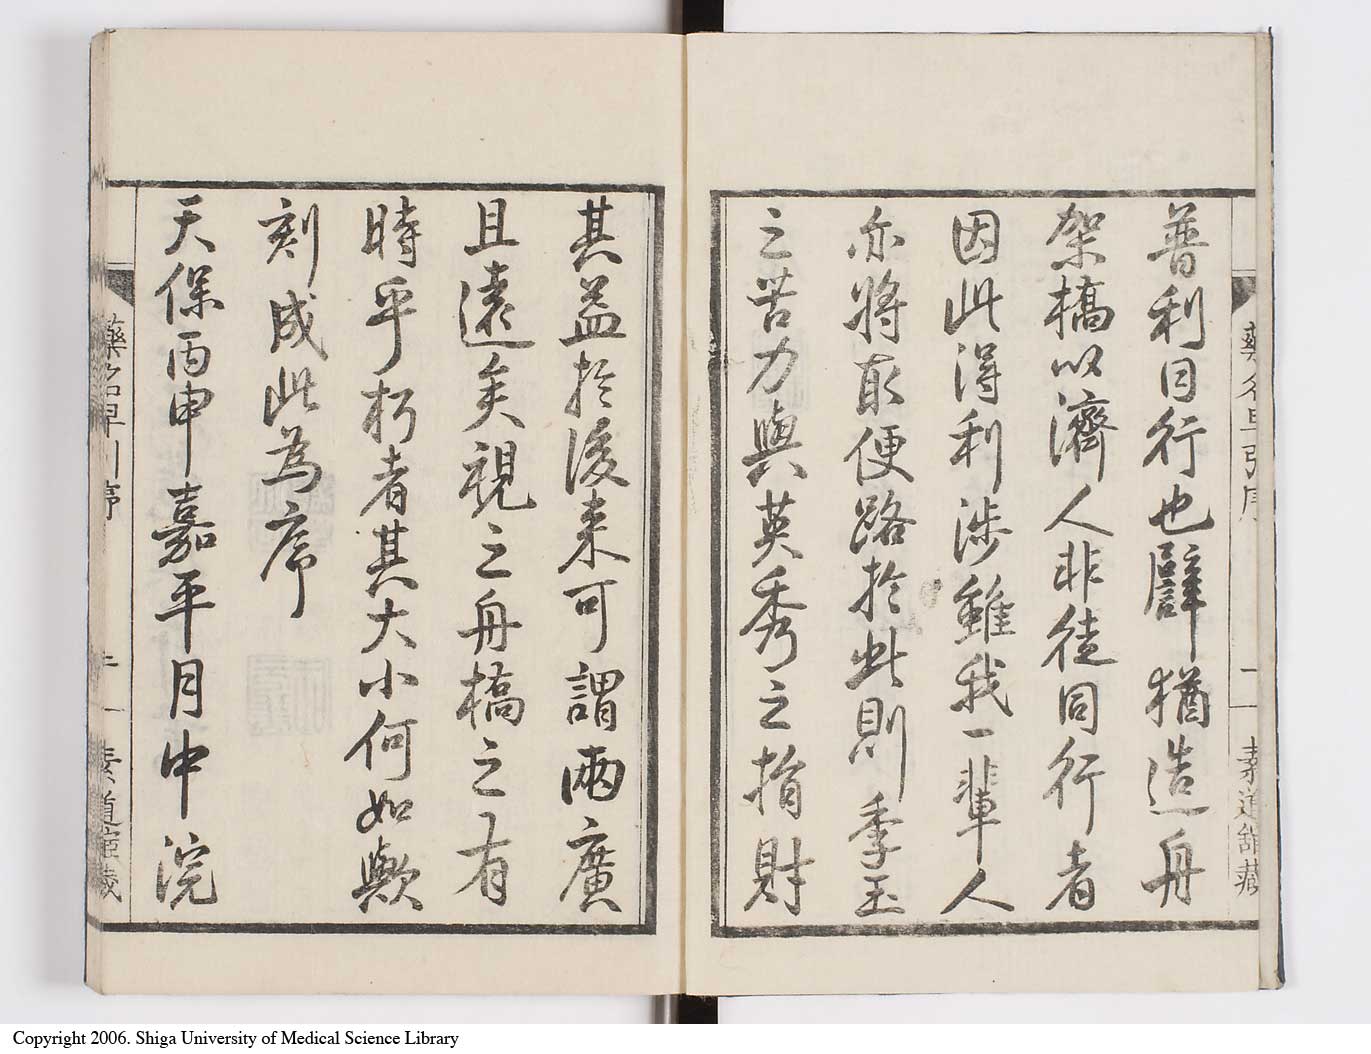 普利同行也譬猶造舟
架橋以濟人非徒同行者
因此得利渉雖我一輩人
亦將取便路於此則季玉
之苦力與英秀之捐財
其益於後来可謂兩廣
且遠矣視之舟橋之有
時乎朽者其大小何如歟
刻成此為序
天保丙申嘉平月中浣
藥名早引序
二
素道館藏
Copyright 2006. Shiga University of Medical Science Library